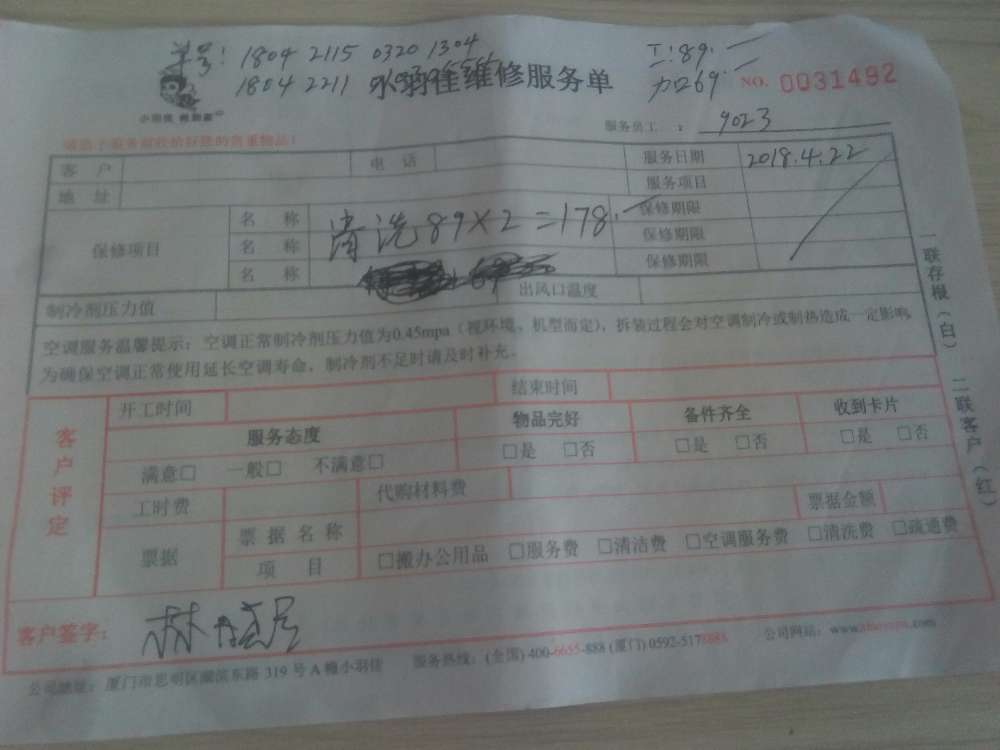 单号: 1804 2115 0320 1304 工:89.一
1804 2211 加69
小羽佳维修服务单 NO. 0031492
小羽佳
服务员工 : 9023
客 户 电 话 服务日期 2018.4.22
地 址 服务项目
保修项目 名 称 清洗89×2=178.一 保修期限
名 称 保修期限
名 称 保修期限
制冷剂压力值 出风口温度
空调服务温馨提示:空调正常制冷剂压力值为0.45mpa(视环境、机型而定),拆装过程会对空调制冷或制热造成一定影响,
为确保空调正常使用延长空调寿命,制冷剂不足时请及时补充。
一联存根(白) 二联客户(红)
客户评定
开工时间 结束时间
服务态度 物品完好 备件齐全 收到卡片
满意□ 一般□ 不满意□ □是 □否 □是 □否 □是 □否
工时费 代购材料费 票据金额
票据 票据名称
项 目 □搬办公用品 □服务费 □清洁费 □空调服务费 □清洗费 □疏通费
客户签字:
公司地址:厦门市思明区湖滨东路319号A幢小羽佳 服务热线:(全国)400-6655-888 (厦门)0592-5178888 公司网站: